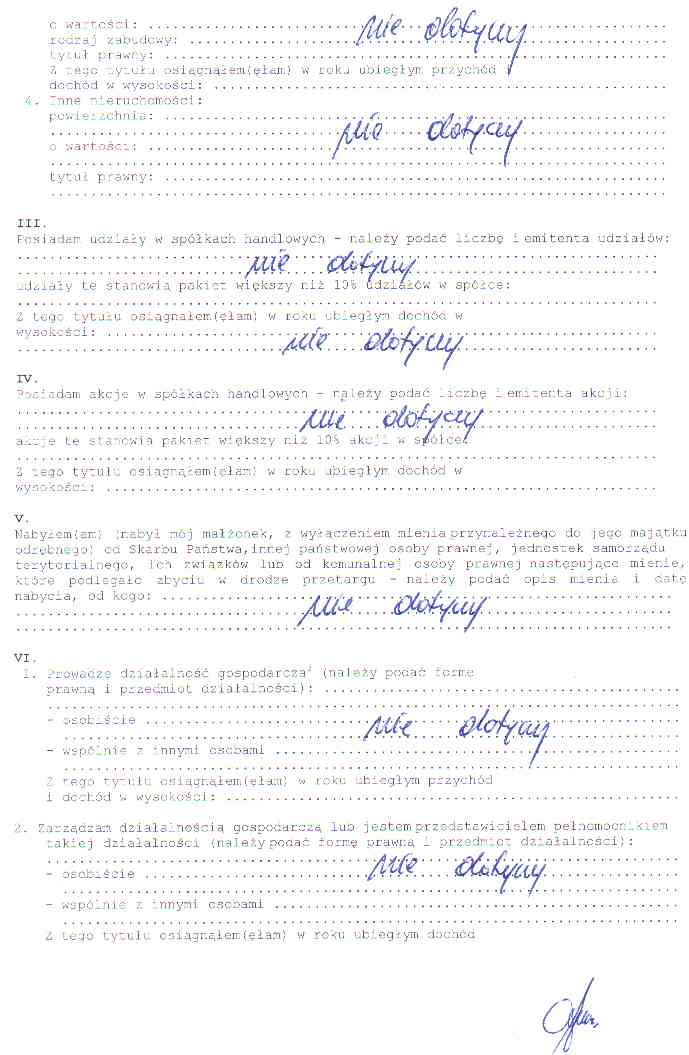 o wartości: .................... nie dotyczy
rodzaj zabudowy: ....................
tytuł prawny: ....................
Z tego tytułu osiągnąłem(ęłam) w roku ubiegłym przychód
dochód w wysokości: ....................
4. Inne nieruchomości:
powierzchnia: ....................
.................... nie dotyczy
o wartości: ....................
....................
tytuł prawny: ....................
....................
III.
Posiadam udziały w spółkach handlowych - należy podać liczbę i emitenta udziałów:
....................
.................... nie dotyczy
udziały te stanowią pakiet większy niż 10% udziałów w spółce:
....................
Z tego tytułu osiągnąłem(ęłam) w roku ubiegłym dochód w
wysokości: ....................
.................... nie dotyczy
IV.
Posiadam akcje w spółkach handlowych - należy podać liczbę i emitenta akcji:
....................
.................... nie dotyczy
akcje te stanowią pakiet większy niż 10% akcji w spółce:
....................
Z tego tytułu osiągnąłem(ęłam) w roku ubiegłym dochód w
wysokości: ....................
V.
Nabyłem(am) (nabył mój małżonek, z wyłączeniem mienia przynależnego do jego majątku
odrębnego) od Skarbu Państwa, innej państwowej osoby prawnej, jednostek samorządu
terytorialnego, ich związków lub od komunalnej osoby prawnej następujące mienie,
które podlegało zbyciu w drodze przetargu - należy podać opis mienia i datę
nabycia, od kogo: ....................
.................... nie dotyczy
....................
VI.
1. Prowadzę działalność gospodarczą² (należy podać formę
prawną i przedmiot działalności): ....................
....................
- osobiście .................... nie dotyczy
....................
- wspólnie z innymi osobami ....................
....................
Z tego tytułu osiągnąłem(ęłam) w roku ubiegłym przychód
i dochód w wysokości: ....................
2. Zarządzam działalnością gospodarczą lub jestem przedstawicielem pełnomocnikiem
takiej działalności (należy podać formę prawną i przedmiot działalności):
....................
- osobiście .................... nie dotyczy
....................
- wspólnie z innymi osobami ....................
....................
Z tego tytułu osiągnąłem(ęłam) w roku ubiegłym dochód